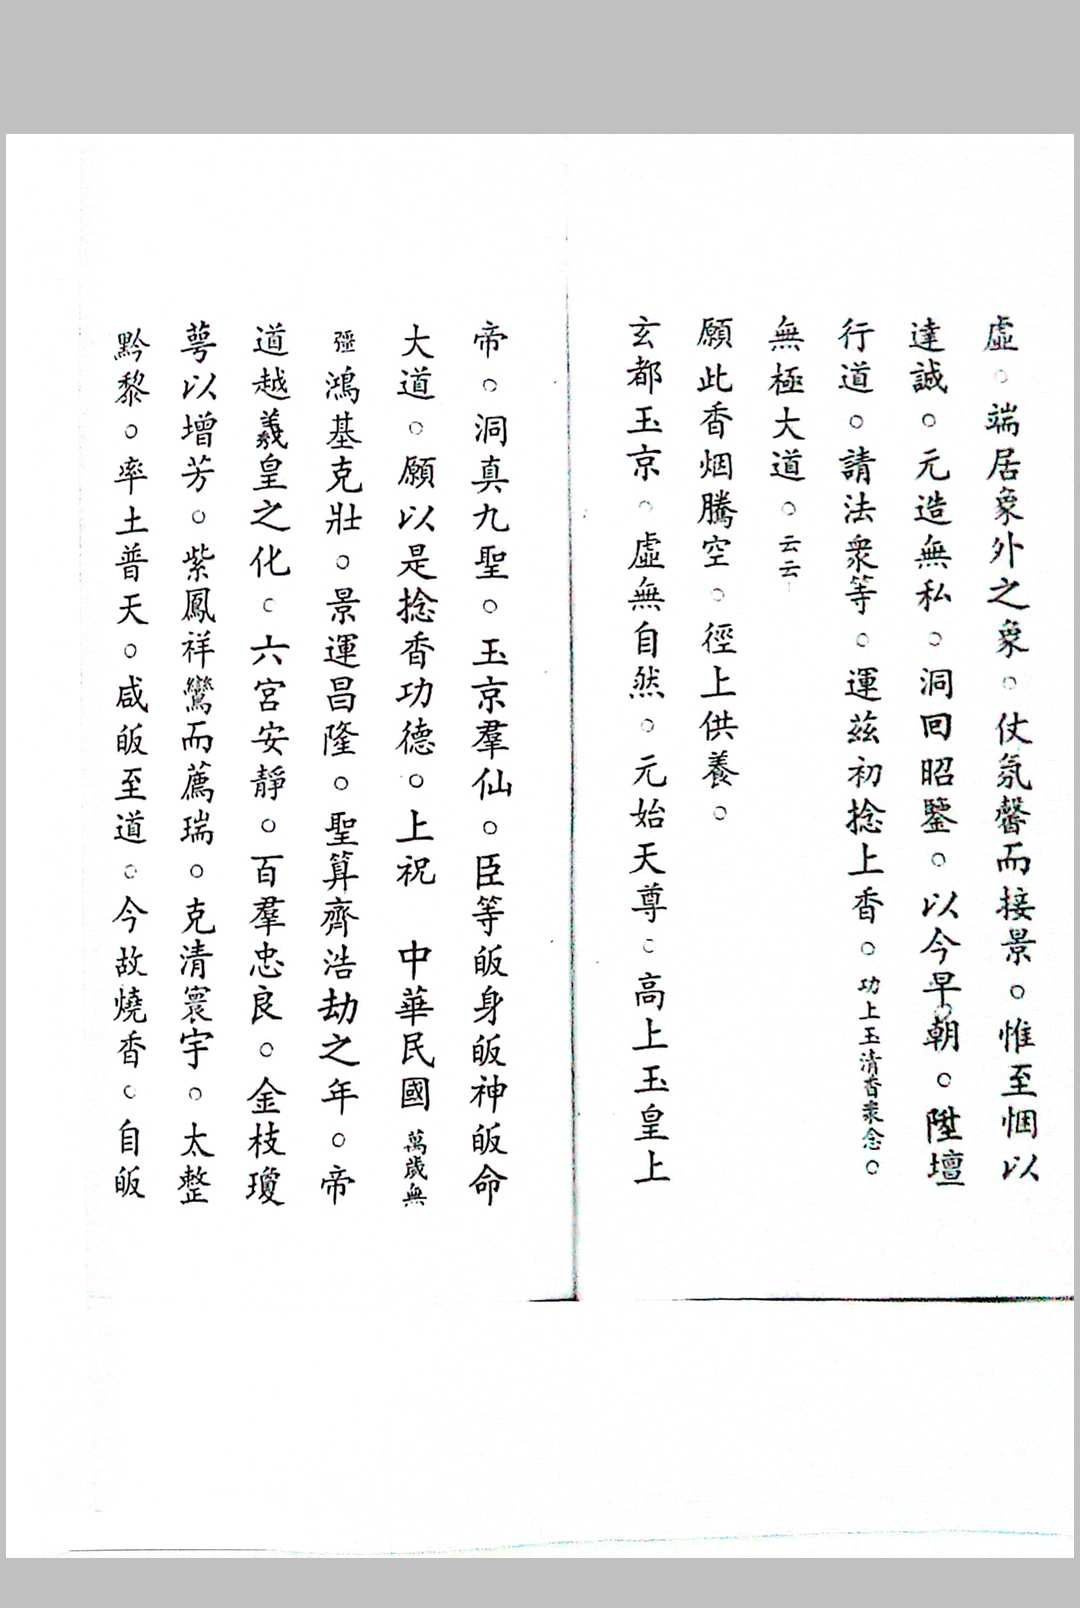 虛。端居象外之象。仗氛馨而接景。惟至悃以
達誠。元造無私。洞回昭鑒。以今早朝。陞壇
行道。請法衆等。運茲初捻上香。功上玉清香衆念。
無極大道。云云
願此香烟騰空。徑上供養。
玄都玉京。虛無自然。元始天尊。高上玉皇上
帝。洞真九聖。玉京羣仙。臣等皈身皈神皈命
大道。願以是捻香功德。上祝　中華民國萬歲無
疆鴻基克壯。景運昌隆。聖算齊浩劫之年。帝
道越羲皇之化。六宮安靜。百羣忠良。金枝瓊
萼以增芳。紫鳳祥鸞而薦瑞。克清寰宇。太整
黔黎。率土普天。咸皈至道。今故燒香。自皈